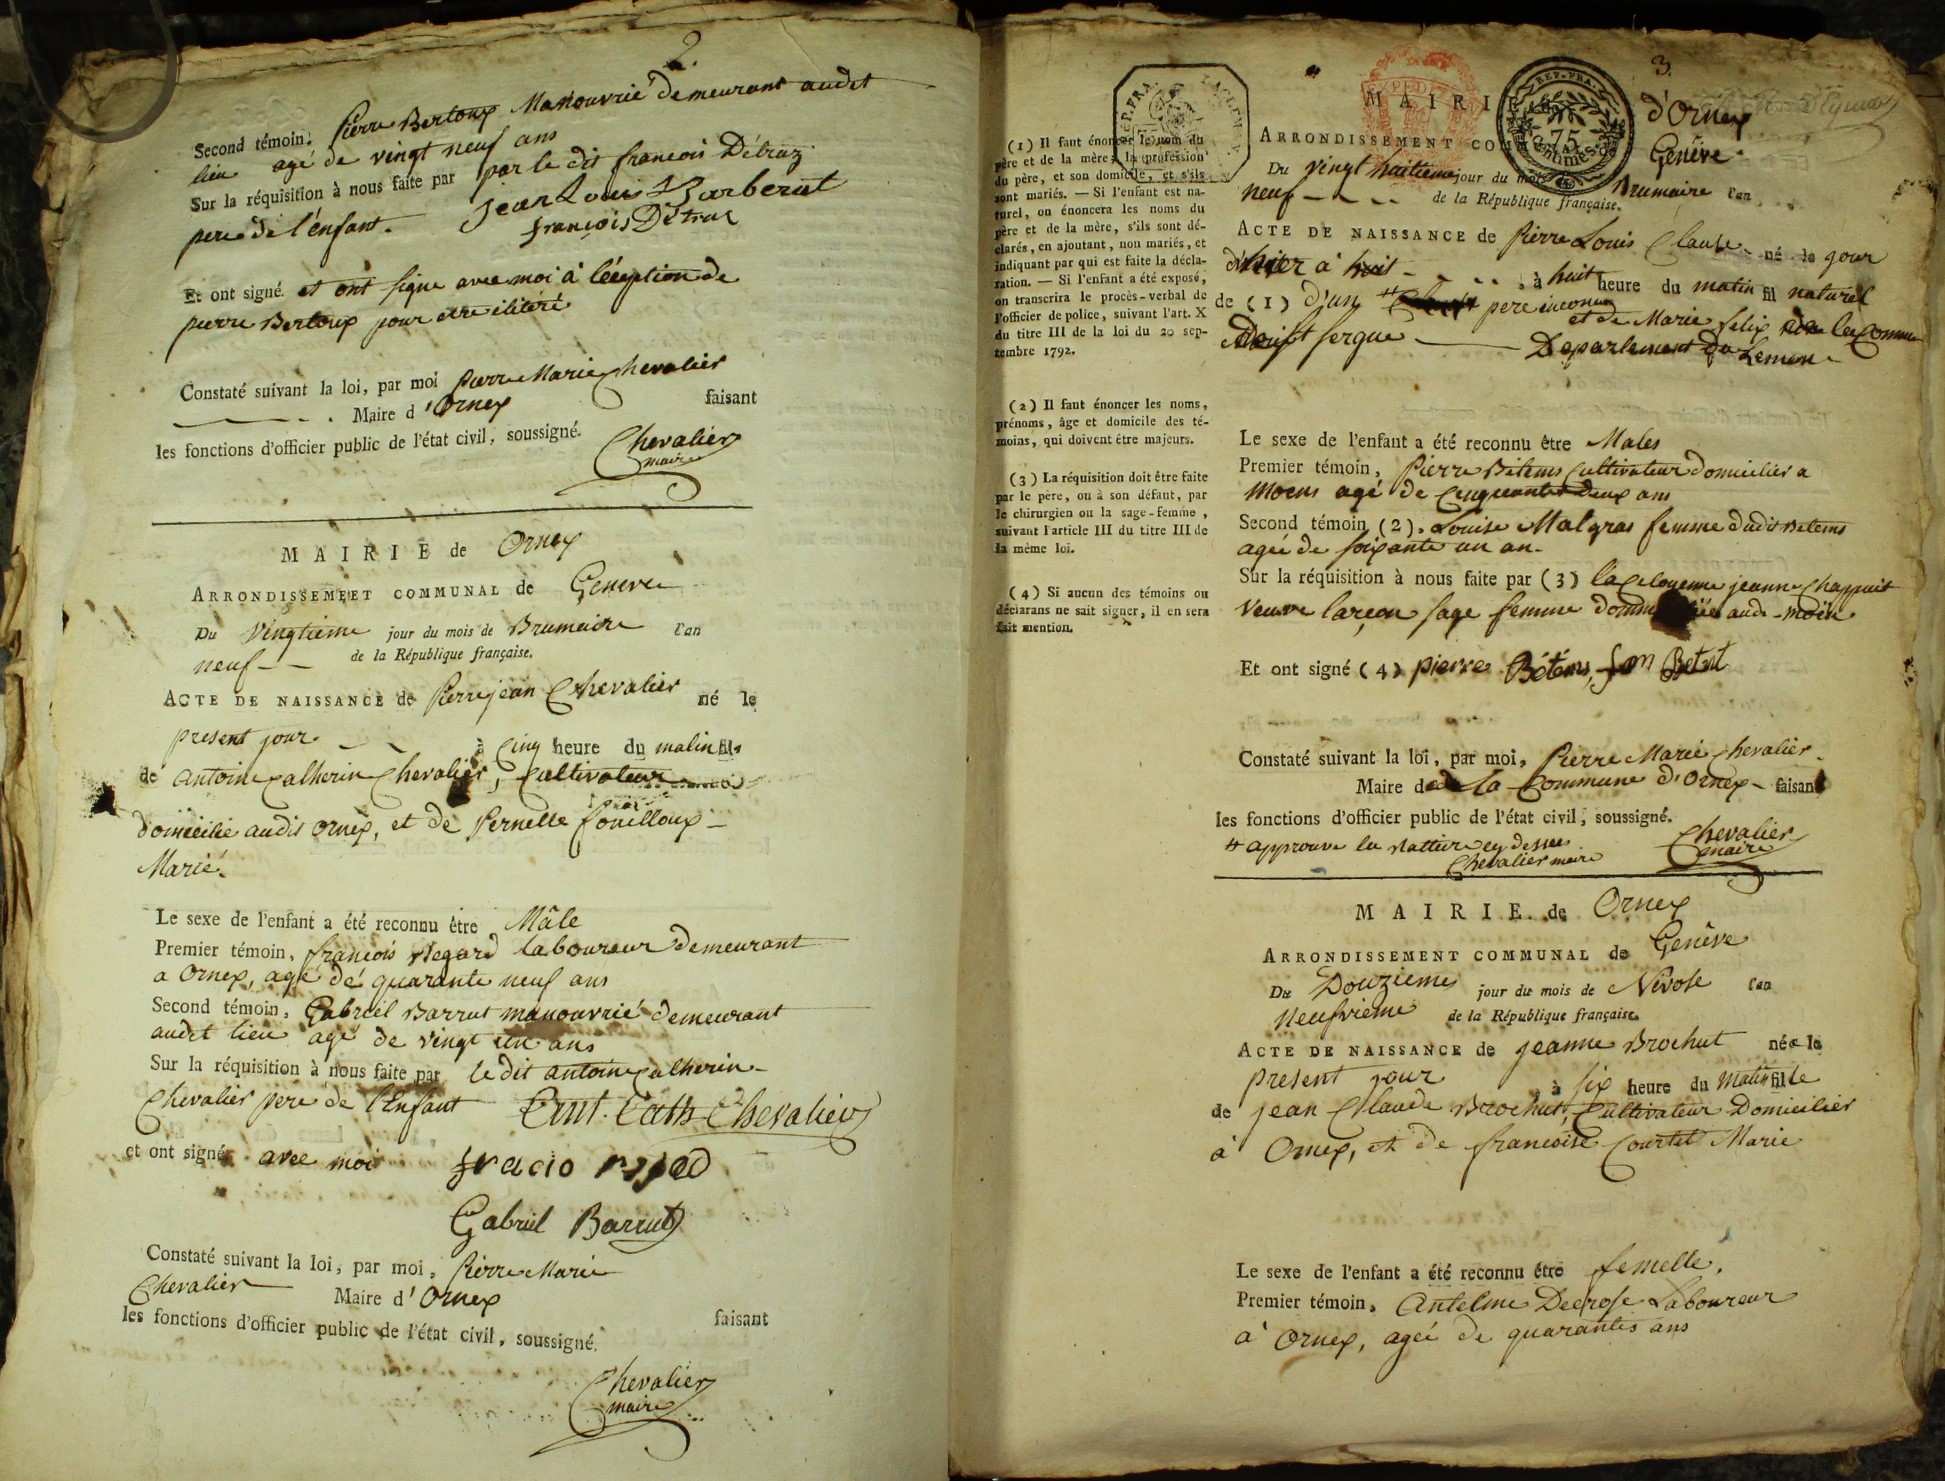 2.
Second témoin. Pierre Bertoux Manouvrié demeurant audit
lieu agé de vingt neuf ans
Sur la réquisition à nous faite par par le dit francois Détraz
pere de l'enfant. jean Louis Barberat
françois Détraz
Et ont signé et ont signe avec moi à léception de
pierre Bertoux pour etre iliteré
Constaté suivant la loi, par moi pierre Marie Chevalier
Maire d'Ornex faisant
les fonctions d'officier public de l'état civil, soussigné.
Chevalier
maire
MAIRIE de Ornex
ARRONDISSEMEET COMMUNAL de Geneve
Du vingtieme jour du mois de Brumaire l'an
neuf de la République française.
ACTE DE NAISSANCE de Pierre jean Chevalier né le
present jour à Cinq heure du matin fils
de antoine Catherin Chevalier, Cultivateur
domicilié audit ornex, et de Pernette fouilloux
Marié.
Le sexe de l'enfant a été reconnu être Mâle
Premier témoin, francois Regard laboureur demeurant
a Ornex, agé de quarante neuf ans
Second témoin, Gabriel Barrut manouvrié demeurant
audit lieu agé de vingt un ans
Sur la réquisition à nous faite par le dit antoine Catherin
Chevalier pere de l'Enfant Ant. Cath Chevalier
et ont signé avec moi
Gabriel Barrut
Constaté suivant la loi, par moi, Pierre Marie
Chevalier Maire d'Ornex
les fonctions d'officier public de l'état civil, soussigné. faisant
Chevalier
maire
3.
REP. FRA.
75
centimes
(1) Il faut énoncer le nom du
père et de la mère, la profession
du père, et son domicile, et s'ils
sont mariés. — Si l'enfant est na-
turel, on énoncera les noms du
père et de la mère, s'ils sont dé-
clarés, en ajoutant, non mariés, et
indiquant par qui est faite la décla-
ration. — Si l'enfant a été exposé,
on transcrira le procès-verbal de
l'officier de police, suivant l'art. X
du titre III de la loi du 20 sep-
tembre 1792.
(2) Il faut énoncer les noms,
prénoms, âge et domicile des té-
moins, qui doivent être majeurs.
(3) La réquisition doit être faite
par le père, ou à son défaut, par
le chirurgien ou la sage-femme,
suivant l'article III du titre III de
la même loi.
(4) Si aucun des témoins ou
déclarans ne sait signer, il en sera
fait mention.
MAIRIE d'Ornex
ARRONDISSEMENT COM Genêve
Du vingt huitieme jour du mois de Brumaire l'an
neuf de la République française.
ACTE DE NAISSANCE de Pierre Louis Claude né le jour
d'hier à huit, à huit heure du matin fil naturel
de (1) d'un pere inconnu
et de Marie felix de la Commune
St sergue Departement du Leman
Le sexe de l'enfant a été reconnu être Males
Premier témoin, Pierre Bétems Cultivateur domicilier a
moens agé de Cinquante deux ans
Second témoin (2). Louise Malgras femme dudit Betems
agée de soixante un an.
Sur la réquisition à nous faite par (3) la Citoyenne jeanne Chappuit
veuve larçon sage femme
Et ont signé (4) pierre Béténs
Constaté suivant la loi, par moi, Pierre Marie Chevalier
Maire de la Commune d'Ornex faisant
les fonctions d'officier public de l'état civil, soussigné.
approuve la Ratture cy dessus Chevalier
Chevalier maire maire
MAIRIE de Ornex
ARRONDISSEMENT COMMUNAL de Genêve
Du Douzieme jour du mois de Nivose l'an
Neufvieme de la République française.
ACTE DE NAISSANCE de jeanne Brochut née le
present jour, à six heure du Matin fille
de jean Claude Brochut, Cultivateur Domicilier
à Ornex, et de francoise Courtet Marie
Le sexe de l'enfant a été reconnu être femelle.
Premier témoin, Antelme Decrose Laboureur
à Ornex, ageé de quarantes ans